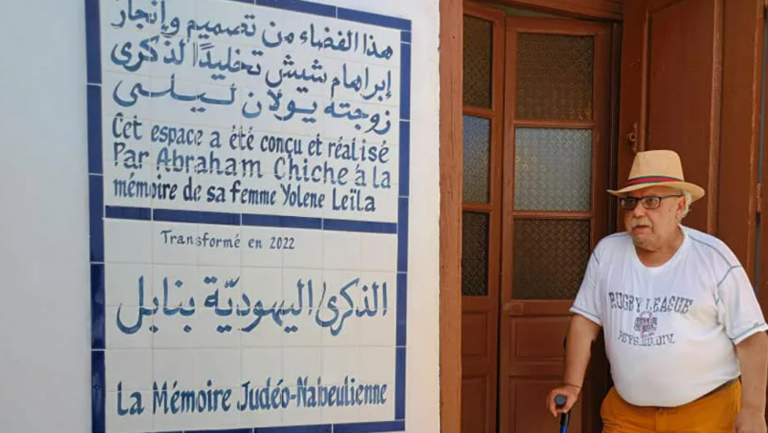 هذا الفضاء من تصميم وإنجاز
إبراهام شيش تخليدًا لذكرى
زوجته يولان ليلى
Cet espace a été conçu et réalisé
Par Abraham Chiche à la
mémoire de sa femme Yolene Leïla
Transformé en 2022
الذكرى اليهوديّة بنابل
La Mémoire Judéo-Nabeulienne
RUGBY LEAGUE